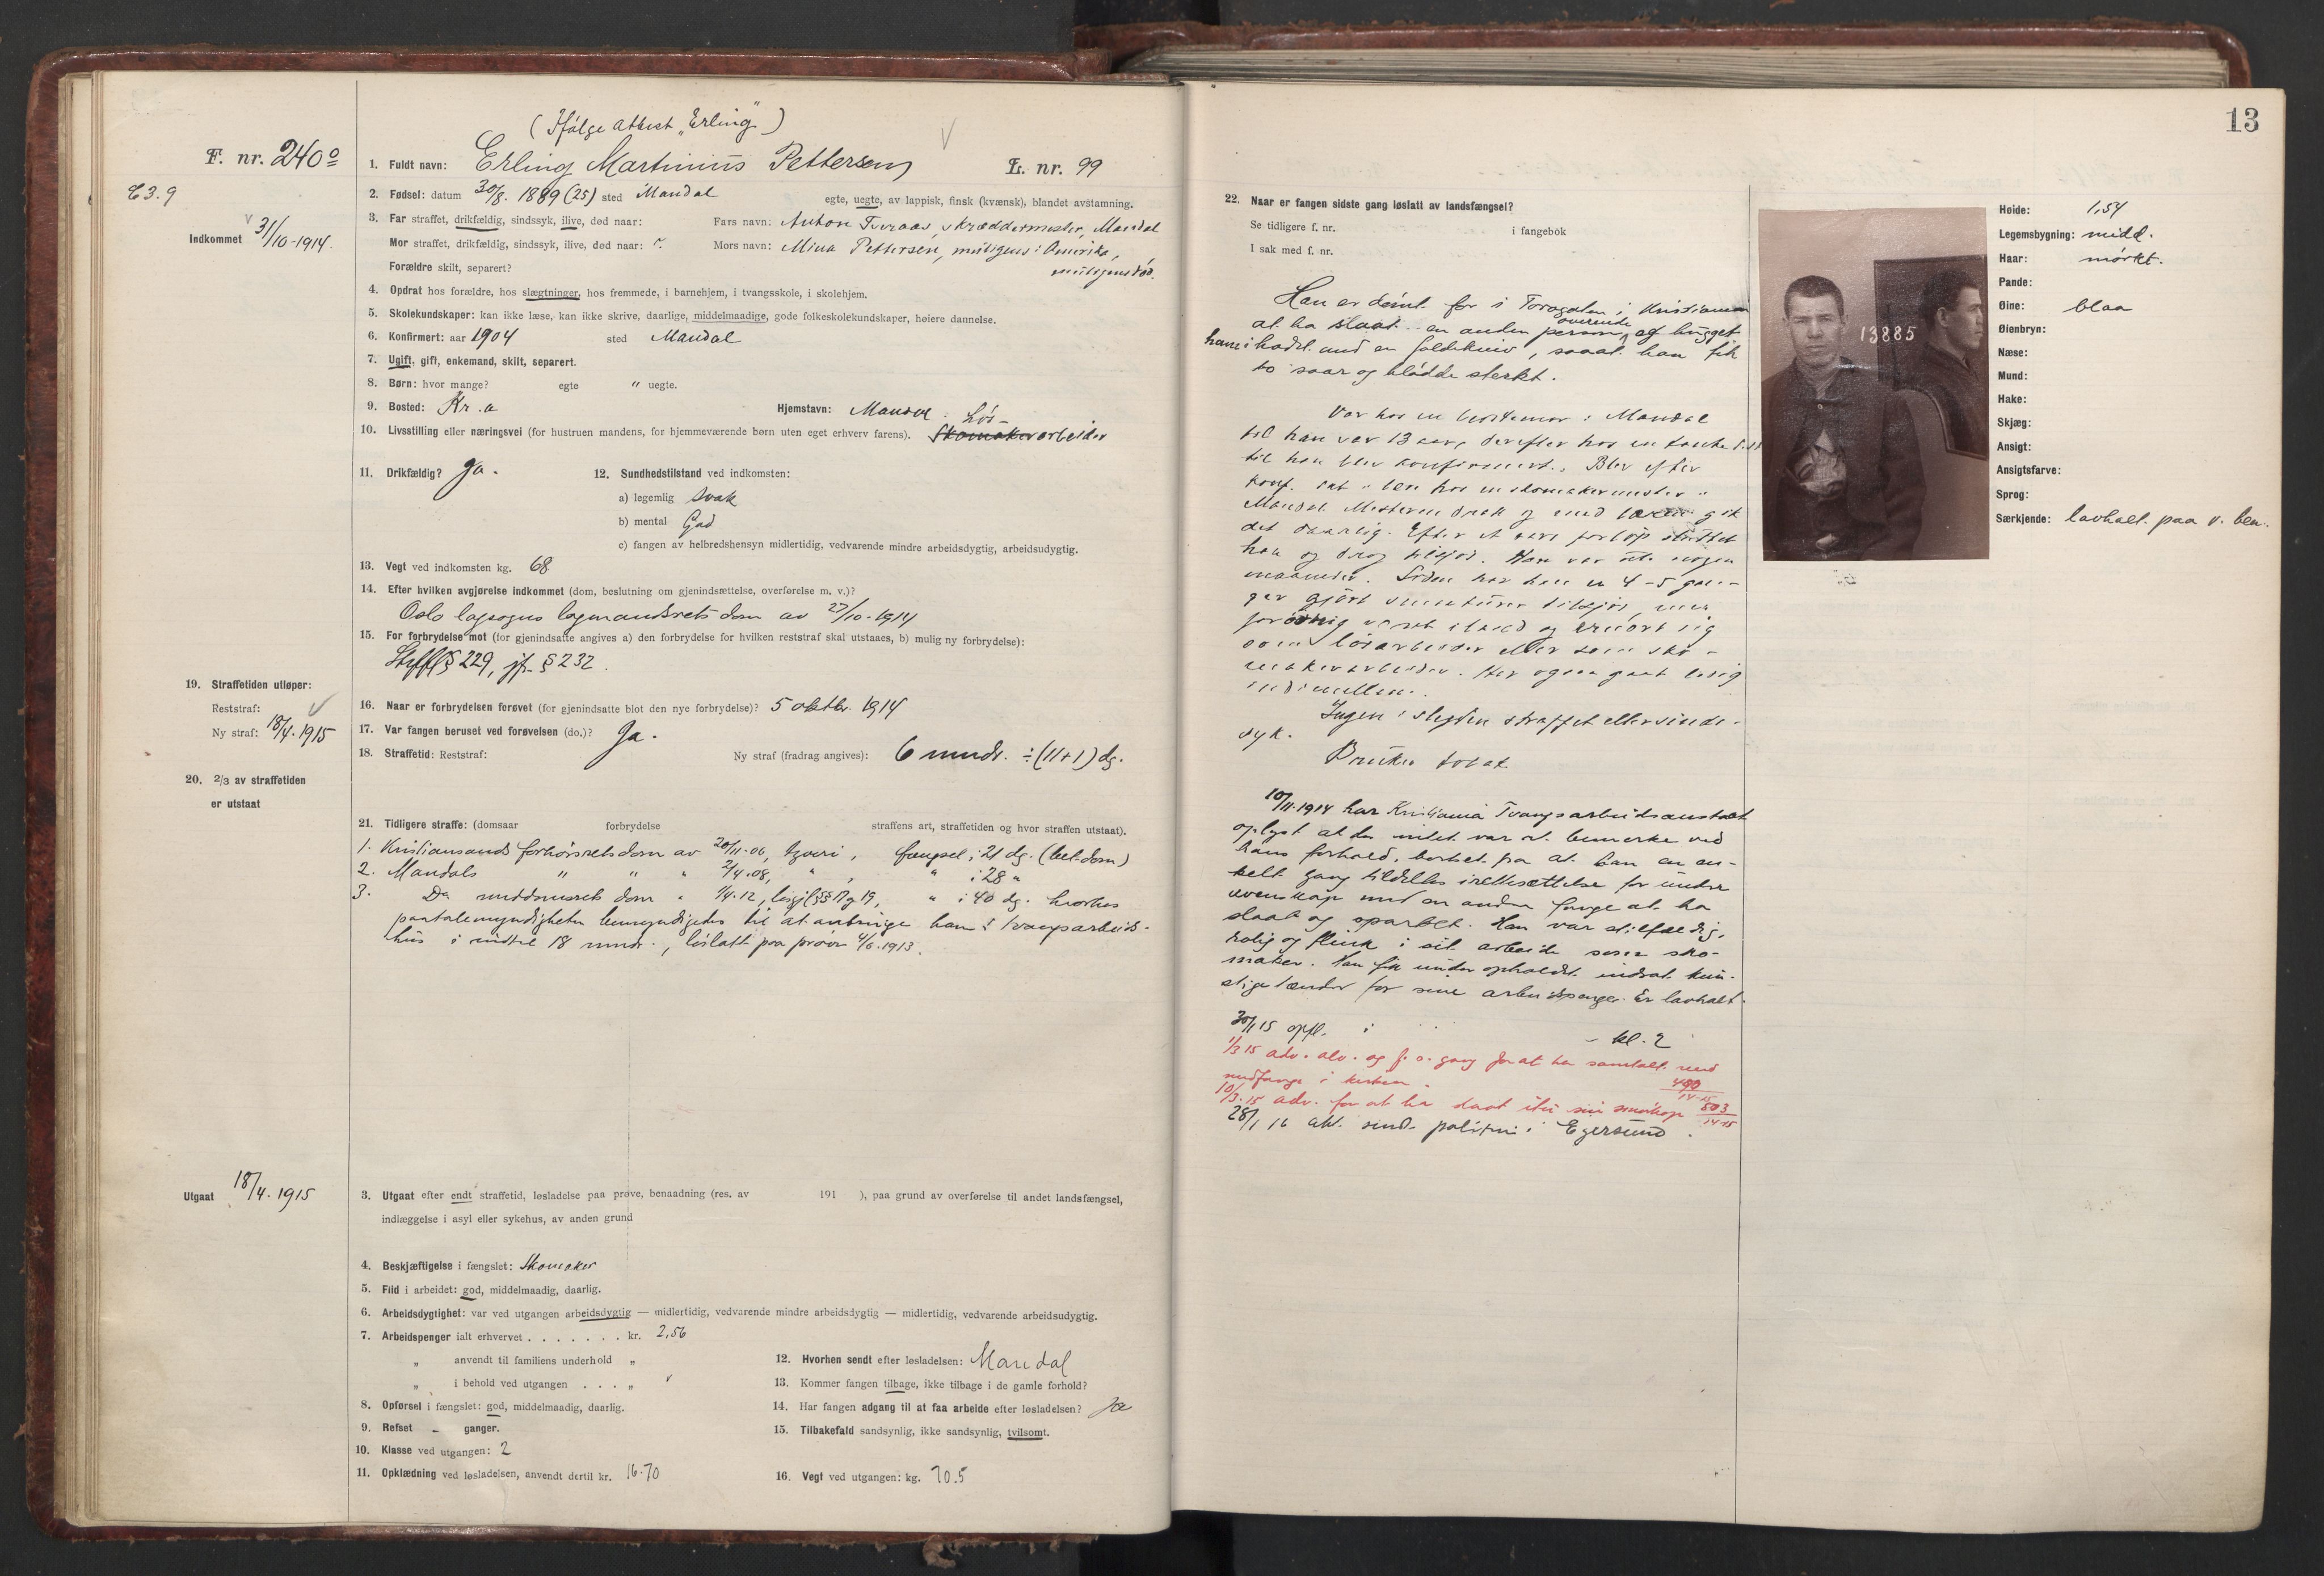 (Ifølge attest „Erling")
F. nr. 240°
1. Fuldt navn: Erling Martinius Pettersen L. nr. 99
E 3.9
2. Fødsel: datum 30/8. 1889 (25) sted Mandal egte, uegte, av lappisk, finsk (kvænsk), blandet avstamning.
Indkommet 31/10-1914.
3. Far straffet, drikfældig, sindssyk, ilive, død naar: Fars navn: Anton Tveraas, skræddermester, Mandal
Mor straffet, drikfældig, sindssyk, ilive, død naar: ?. Mors navn: Mina Pettersen, mutigens i Amerika,
Forældre skilt, separert? mutigens død.
4. Opdrat hos forældre, hos slægtninger, hos fremmede, i barnehjem, i tvangsskole, i skolehjem.
5. Skolekundskaper: kan ikke læse, kan ikke skrive, daarlige, middelmaadige, gode folkeskolekundskaper, høiere dannelse.
6. Konfirmert: aar 1904 sted Mandal
7. Ugift, gift, enkemand, skilt, separert.
8. Børn: hvor mange? egte " uegte.
9. Bosted: Kr.a Hjemstavn: Mandal. Løs-
10. Livsstilling eller næringsvei (for hustruen mandens, for hjemmeværende børn uten eget erhverv farens). Skomakerarbeider
11. Drikfældig? Ja. 12. Sundhedstilstand ved indkomsten:
a) legemlig svak
b) mental God
c) fangen av helbredshensyn midlertidig, vedvarende mindre arbeidsdygtig, arbeidsudygtig.
13. Vegt ved indkomsten kg. 68
14. Efter hvilken avgjørelse indkommet (dom, beslutning om gjenindsættelse, overførelse m. v.)?
Oslo lagsogns lagmandsrets dom av 27/10-1914
15. For forbrydelse mot (for gjenindsatte angives a) den forbrydelse for hvilken reststraf skal utstaaes, b) mulig ny forbrydelse):
Strfl § 229, jf. § 232.
19. Straffetiden utløper:
Reststraf:
Ny straf: 18/4.1915
16. Naar er forbrydelsen forøvet (for gjenindsatte blot den nye forbrydelse)? 5 oktbr. 1914
17. Var fangen beruset ved forøvelsen (do.)? Ja.
18. Straffetid: Reststraf: Ny straf (fradrag angives): 6 mndr. ÷ (11+1) dg.
20. 2/3 av straffetiden
er utstaat
21. Tidligere straffe: (domsaar forbrydelse straffens art, straffetiden og hvor straffen utstaat).
1. Kristiansands forhørsretsdom av 20/11-06, tyveri, fængsel i 21 dg. (bet. dom)
2. Mandals " " " 2/4.08, " , " i 28 "
3. Da meddomsrets dom " 1/4-12, løsgjl §§ 17 og 19, " i 40 dg. hvorhos
paatalemyndigheten bemyndigedes til at anbringe ham i tvangsarbeids-
hus i indtil 18 mndr., løslatt paa prøve 4/6.1913.
Utgaat 18/4.1915
3. Utgaat efter endt straffetid, løsladelse paa prøve, benaadning (res. av 191 ), paa grund av overførelse til andet landsfængsel,
indlæggelse i asyl eller sykehus, av anden grund
4. Beskjæftigelse i fængslet: Skomaker
5. Flid i arbeidet: god, middelmaadig, daarlig.
6. Arbeidsdygtighet: var ved utgangen arbeidsdygtig — midlertidig, vedvarende mindre arbeidsdygtig — midlertidig, vedvarende arbeidsudygtig.
7. Arbeidspenger ialt erhvervet . . . . . . . kr. 2,56
„ anvendt til familiens underhold „
„ i behold ved utgangen . . . „
8. Opførsel i fængslet: god, middelmaadig, daarlig.
9. Refset - ganger.
10. Klasse ved utgangen: 2
11. Opklædning ved løsladelsen, anvendt dertil kr. 16.70
12. Hvorhen sendt efter løsladelsen: Mandal
13. Kommer fangen tilbage, ikke tilbage i de gamle forhold?
14. Har fangen adgang til at faa arbeide efter løsladelsen? Ja
15. Tilbakefald sandsynlig, ikke sandsynlig, tvilsomt.
16. Vegt ved utgangen: kg. 70.5
13
22. Naar er fangen sidste gang løslatt av landsfængsel?
Se tidligere f. nr. i fangebok
I sak med f. nr.
Han er dømt for i Torvgaten i Kristiania
at ha slaat en anden person overende og hugget
ham i hodet med en foldekniv, saaat han fik
to saar og blødde sterkt.
Var hos en bestemor i Mandal
til han var 13 aar, derefter hos en tante
til han blev konfirmert. Blev efter
konf. sat i lære hos en skomakermester i
Mandal. Mesteren drak og med læren gik
det daarlig. Efter et aars forløp sluttet
han og drog tilsjøs. Han var ute nogen
maaneder. Siden har han en 4-5 gan-
ger gjort smaaturer tilsjøs, men
forøvrig været iland og ernært sig
som løsarbeider eller som sko-
makerarbeider. Har ogsaa gaat ledig
indimellem.
Ingen i slegten straffet eller sinds-
syk.
Bruker tobak.
10/11.1914 har Kristiania Tvangsarbeidsanstalt
oplyst at der intet var at bemerke ved
hans forhold, bortset fra at han en en-
kelt gang tildeltes irettesættelse for under
uvenskap med en anden fange at ha
slaat og sparket. Han var stilfærdig,
rolig og flink i sit arbeide som sko-
maker. Han fik under opholdet indsat kun-
stige tænder for sine arbeidspenger. Er lavhalt.
30/1 15 opfl. i - kl. 2
1/3 15 adv. alv. og f. s. gang for at ha samtalt med
medfange i kirken. 490/14-15
10/3.15 adv. for at ha slaat itu sin smørkop 503/14-15
28/1 16 akt. sendt politim. i Egersund.
13885
Høide: 1,54
Legemsbygning: midd.
Haar: mørkt.
Pande:
Øine: blaa
Øienbryn:
Næse:
Mund:
Hake:
Skjæg:
Ansigt:
Ansigtsfarve:
Sprog:
Særkjende: lavhalt paa v. ben.